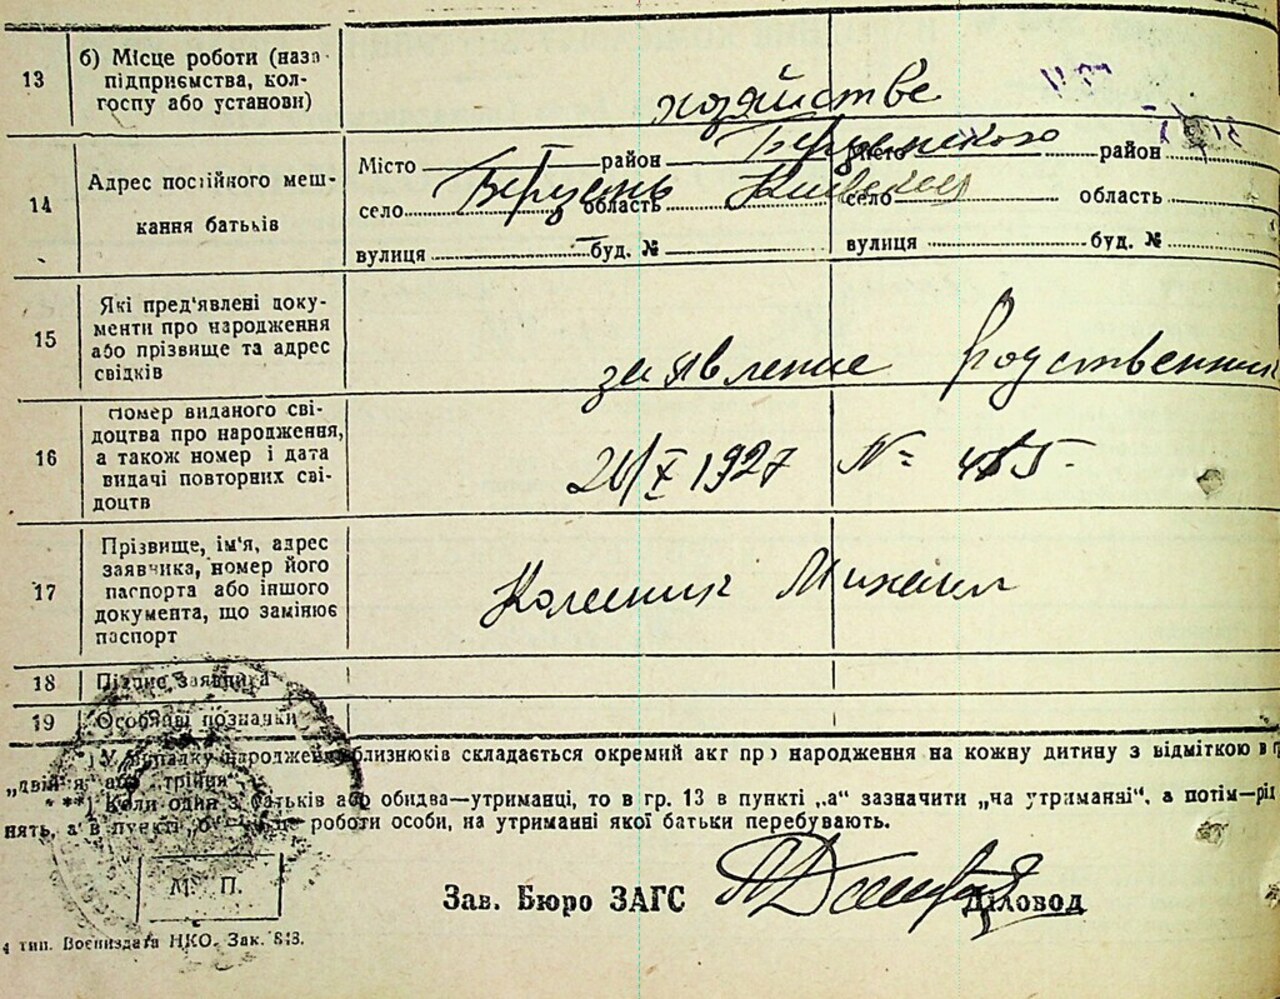 13
б) Місце роботи (назва
підприємства, кол-
госпу або установи)
хозяйстве
14
Адрес постійного меш-
кання батьків
Місто район Місто район
село Березень область Киевская село область
вулиця буд. № вулиця буд. №
15
Які пред'явлені доку-
менти про народження
або прізвище та адрес
свідків
заявление родственник
16
Номер виданого сві-
доцтва про народження,
а також номер і дата
видачі повторних сві-
доцтв
/X 1927 №
17
Прізвище, ім'я, адрес
заявника, номер його
паспорта або іншого
документа, що замінює
паспорт
Колесник Михаил
18 Підпис заявника
19 Особливі позначки
*) У випадку народження близнюків складається окремий акт про народження на кожну дитину з відміткою в г
„двійня" або „трійня".
**) Коли один з батьків або обидва—утриманці, то в гр. 13 в пункті „а" зазначити „на утриманні", а потім—рід
нять, а в пункті „б"— роботи особи, на утриманні якої батьки перебувають.
М. П.
Зав. Бюро ЗАГС Діловод
4 тип. Воениздата НКО. Зак. 813.